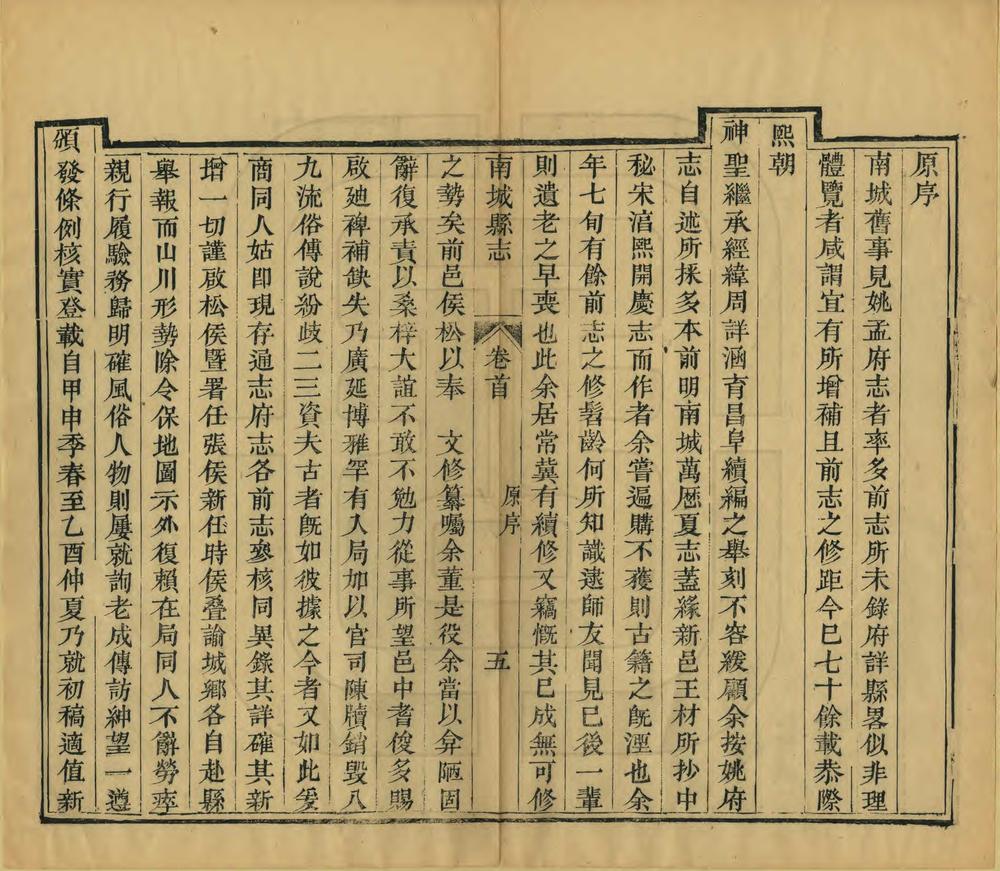 原序
南城舊事見姚孟府志者率多前志所未錄府詳縣畧似非理
體覽者咸謂宜有所增補且前志之修距今已七十餘載恭際
熙朝
神聖繼承經緯周詳涵育昌阜續編之舉刻不容緩顧余按姚府
志自述所採多本前明南城萬厯夏志葢緣新邑王材所抄中
秘宋湻熙開慶志而作者余嘗遍購不獲則古籍之旣湮也余
年七旬有餘前志之修髫齡何所知識逮師友聞見已後一輩
則遺老之早喪也此余居常冀有續修又竊慨其已成無可修
南城縣志 卷首 原序 五
之勢矣前邑侯松以奉 文修纂囑余董是役余當以弇陋固
辭復承責以桑梓大誼不敢不勉力從事所望邑中耆俊多賜
啟廸裨補缺失乃廣延博雅罕有入局如以官司陳牘銷毀八
九流俗傳說紛歧二三資夫古者旣如彼據之今者又如此爰
商同人姑卽現存通志府志各前志叅核同異錄其詳確其新
增一切謹啟松侯暨署任張侯新任時侯叠諭城鄉各自赴縣
舉報而山川形勢除令保地圖示外復賴在局同人不辭勞瘁
親行履驗務歸明確風俗人物則屢就詢老成傳訪紳望一遵
頒發條例核實登載自甲申季春至乙酉仲夏乃就初稿適值新